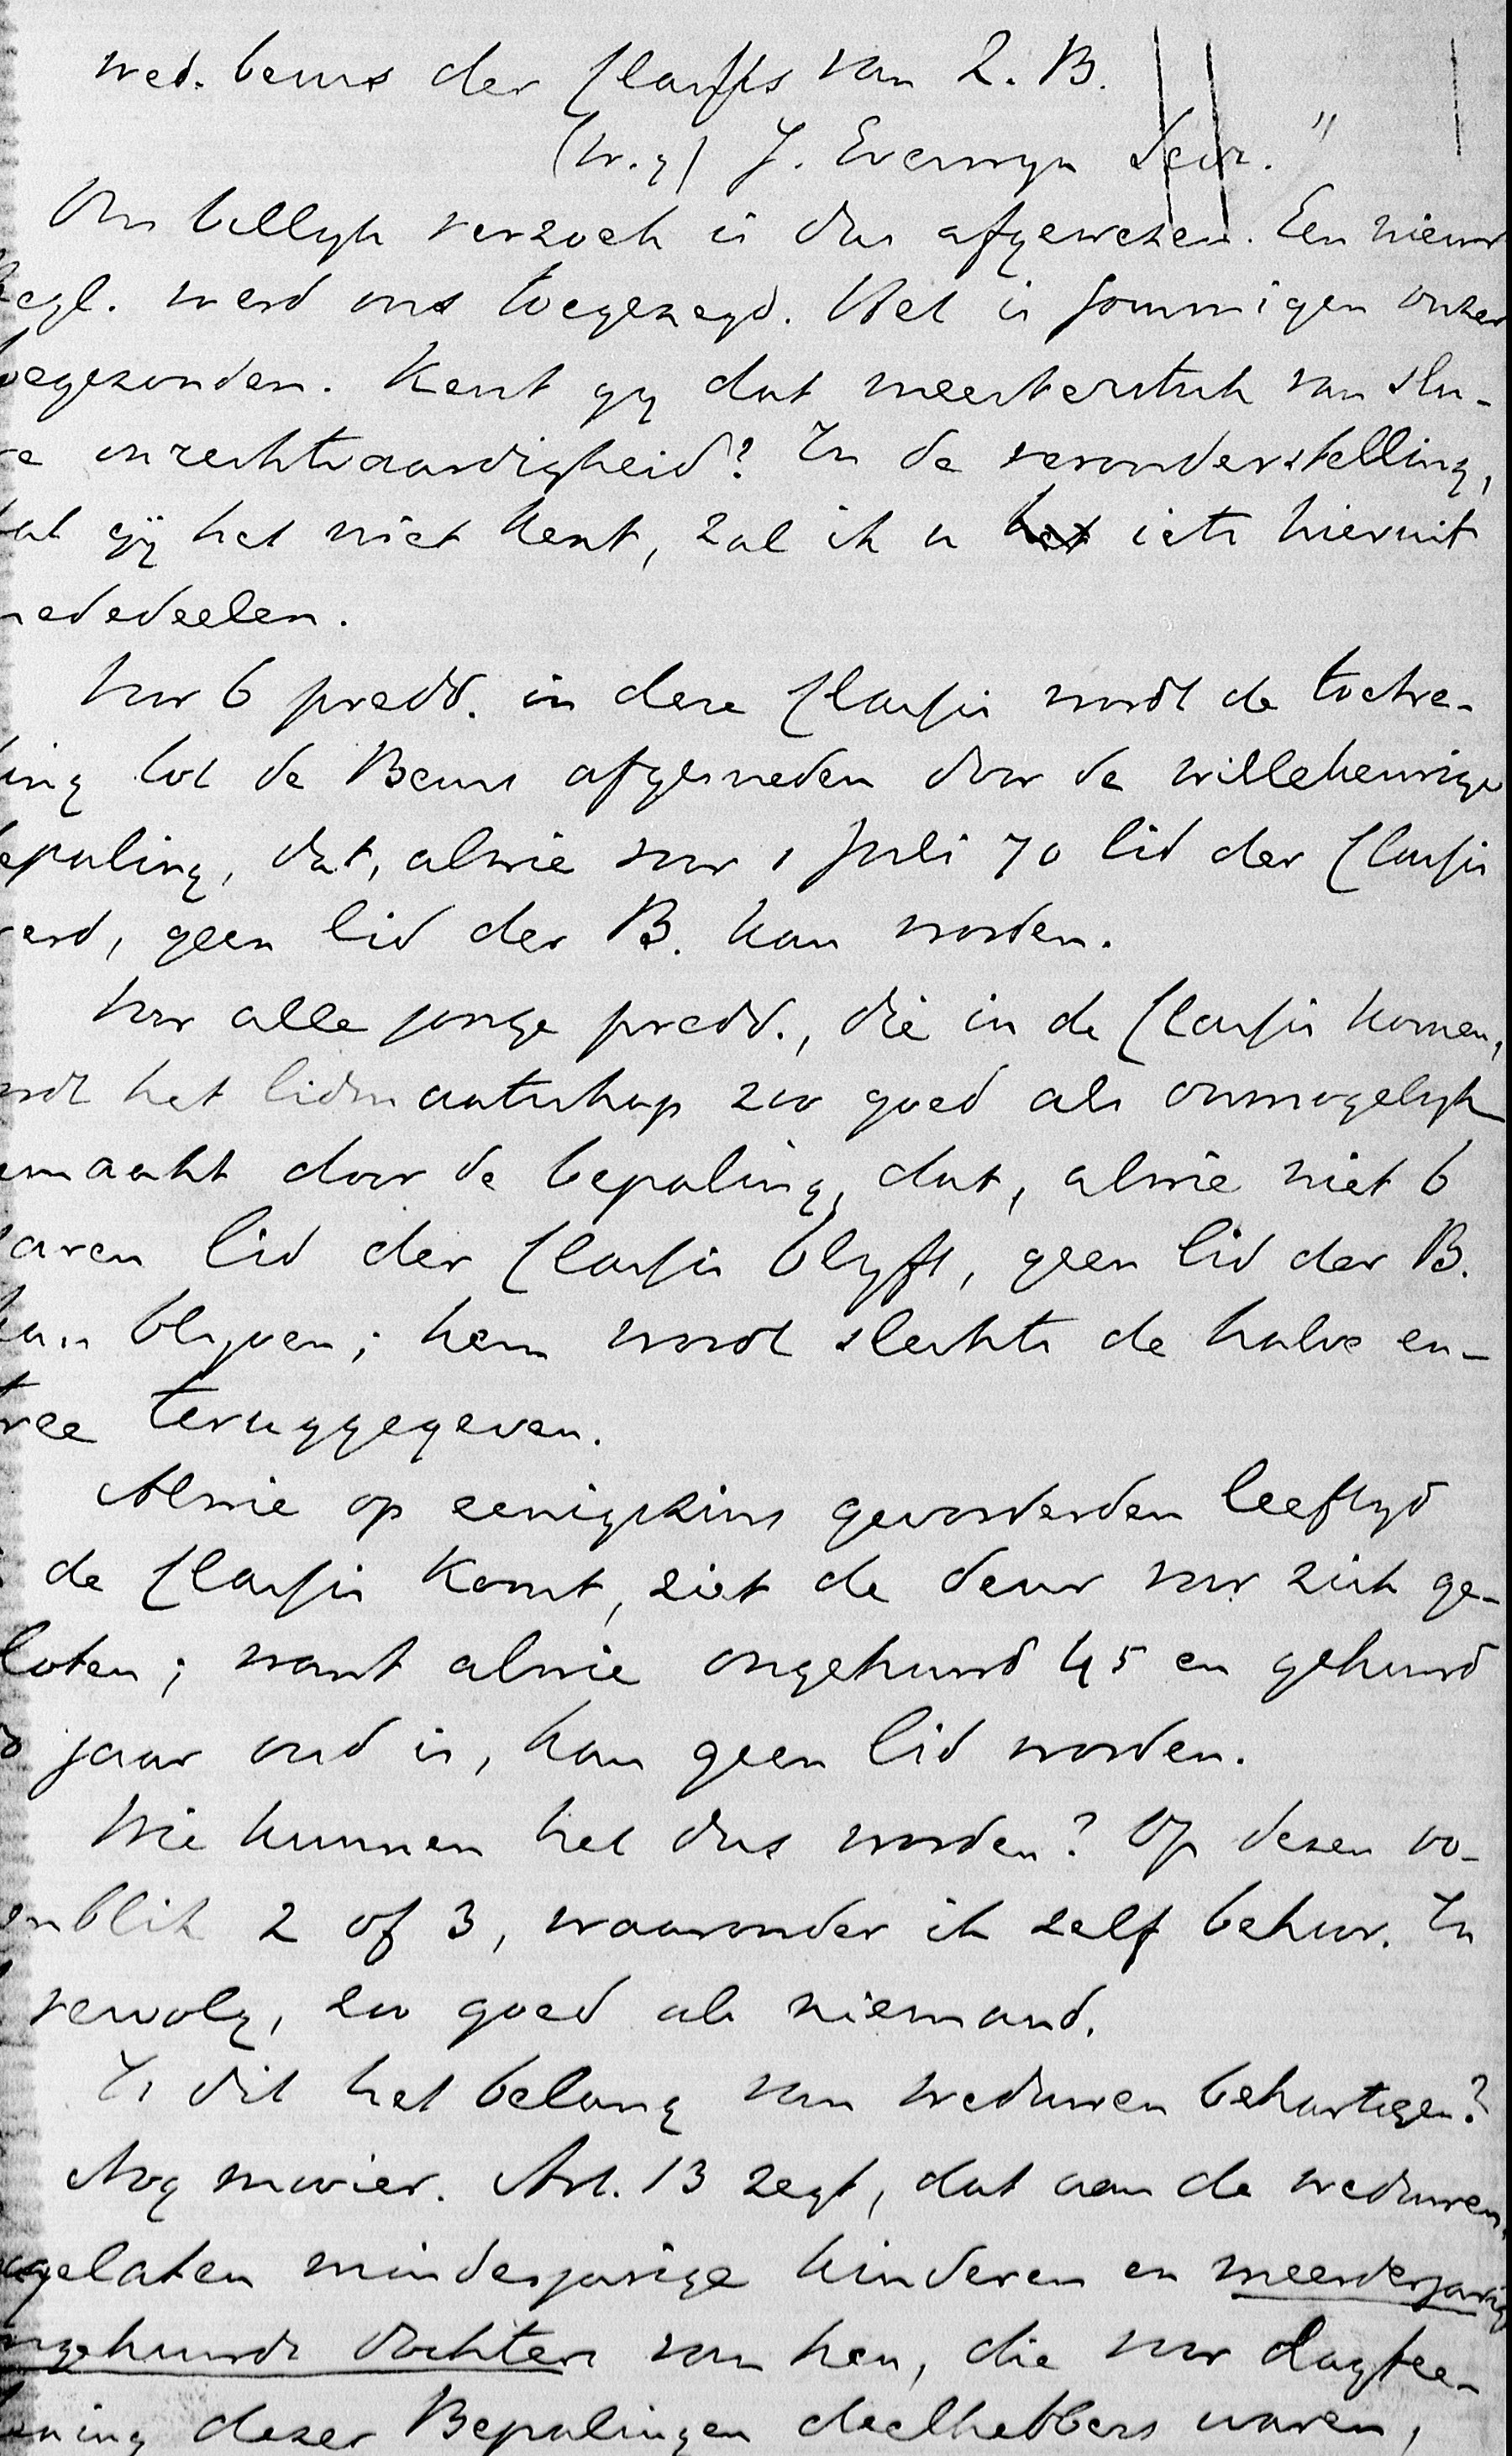 wed. beurs der Classis van Z. B.
(w.g) J. Everwyn Secr. "
Ons billyk verzoek is dus afgewezen. Een nieuw
egl. werd ons toegezegd. Het is sommigen onzer
oegezonden. Kent gy dat meesterstuk van slu-
e onrechtvaardigheid? In de veronderstelling,
at gij het niet kent, zal ik u iets hieruit
ededeelen.
Voor 6 predd. in deze Classis wordt de toetre-
ing tot de Beurs afgesneden door de willekeurige
epaling, dat, alwie voor 1 Juli 70 lid der Classis
erd, geen lid der B. kan worden.
Voor alle jonge predd., die in de Classis komen,
rdt het lidmaatschap zoo goed als onmogelyk
emaakt door de bepaling, dat, alwie niet 6
aren lid der Classis blyft, geen lid der B.
kan blyven; hem wordt slechts de halve en-
ree teruggegeven.
Alwie op eenigzins gevorderden leeftyd
de Classis komt, ziet de deur voor zich ge-
loten; want alwie ongehuwd 45 en gehuwd
jaar oud is, kan geen lid worden.
Wie kunnen het dus worden? Op dezen oo-
enblik 2 of 3, waaronder ik zelf behoor. In
vervolg, zoo goed als niemand.
Is dit het belang van weduwen behartigen?
Nog mooier. Art. 13 zegt, dat aan de weduwen,
agelaten minderjarige kinderen en meerderjarig
ngehuwde dochters van hen, die voor dagtee-
ening dezer Bepalingen deelhebbers waren,